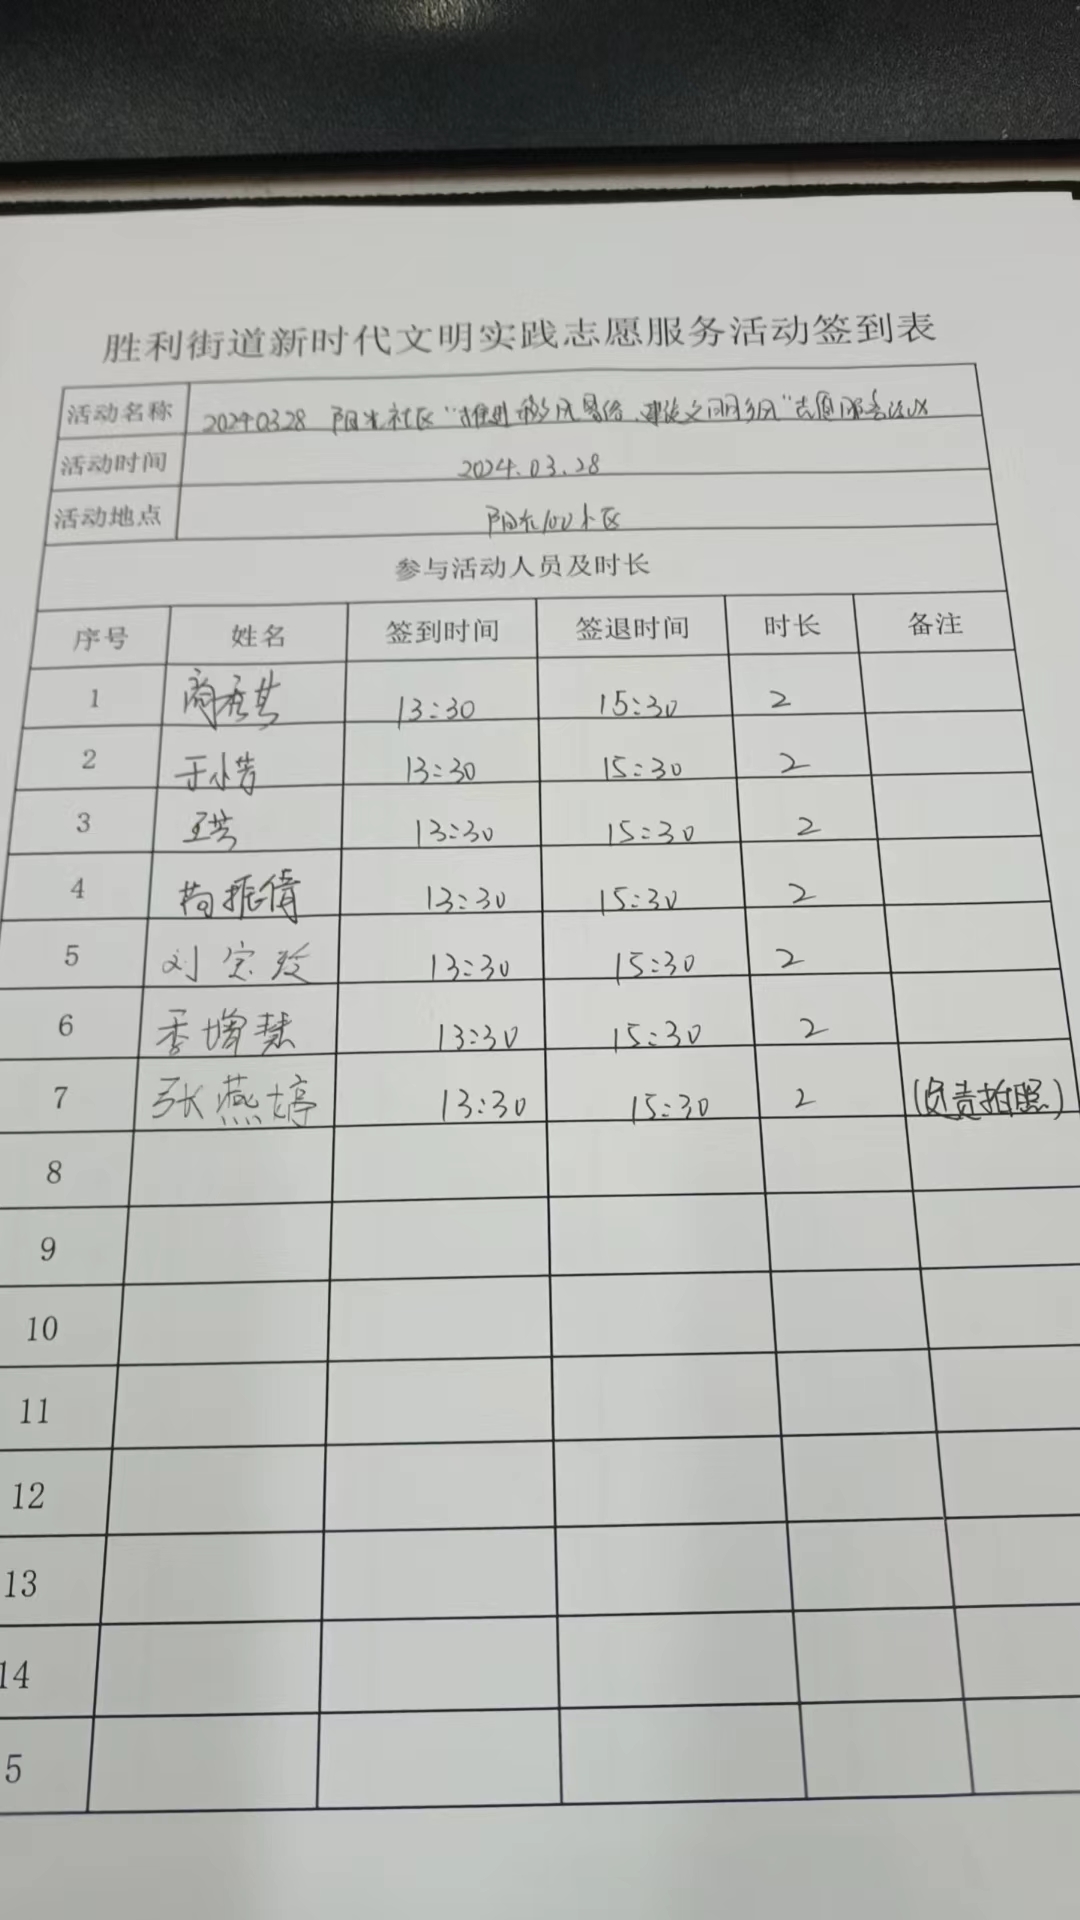 胜利街道新时代文明实践志愿服务活动签到表
活动名称 20240328 阳光社区“推进移风易俗、建设文明乡风”志愿服务活动
活动时间 2024.03.28
活动地点 阳光100小区
参与活动人员及时长
序号 姓名 签到时间 签退时间 时长 备注
1 13:30 15:30 2
2 于小芳 13:30 15:30 2
3 王芸 13:30 15:30 2
4 振倩 13:30 15:30 2
5 刘宗玲 13:30 15:30 2
6 季增慧 13:30 15:30 2
7 张燕婷 13:30 15:30 2 (负责拍照)
8
9
10
11
12
13
14
5